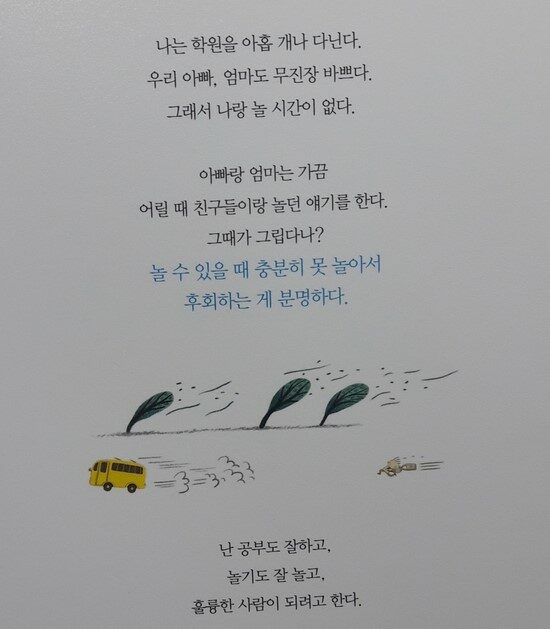 나는 학원을 아홉 개나 다닌다.
우리 아빠, 엄마도 무진장 바쁘다.
그래서 나랑 놀 시간이 없다.
아빠랑 엄마는 가끔
어릴 때 친구들이랑 놀던 얘기를 한다.
그때가 그립다나?
놀 수 있을 때 충분히 못 놀아서
후회하는 게 분명하다.
난 공부도 잘하고,
놀기도 잘 놀고,
훌륭한 사람이 되려고 한다.